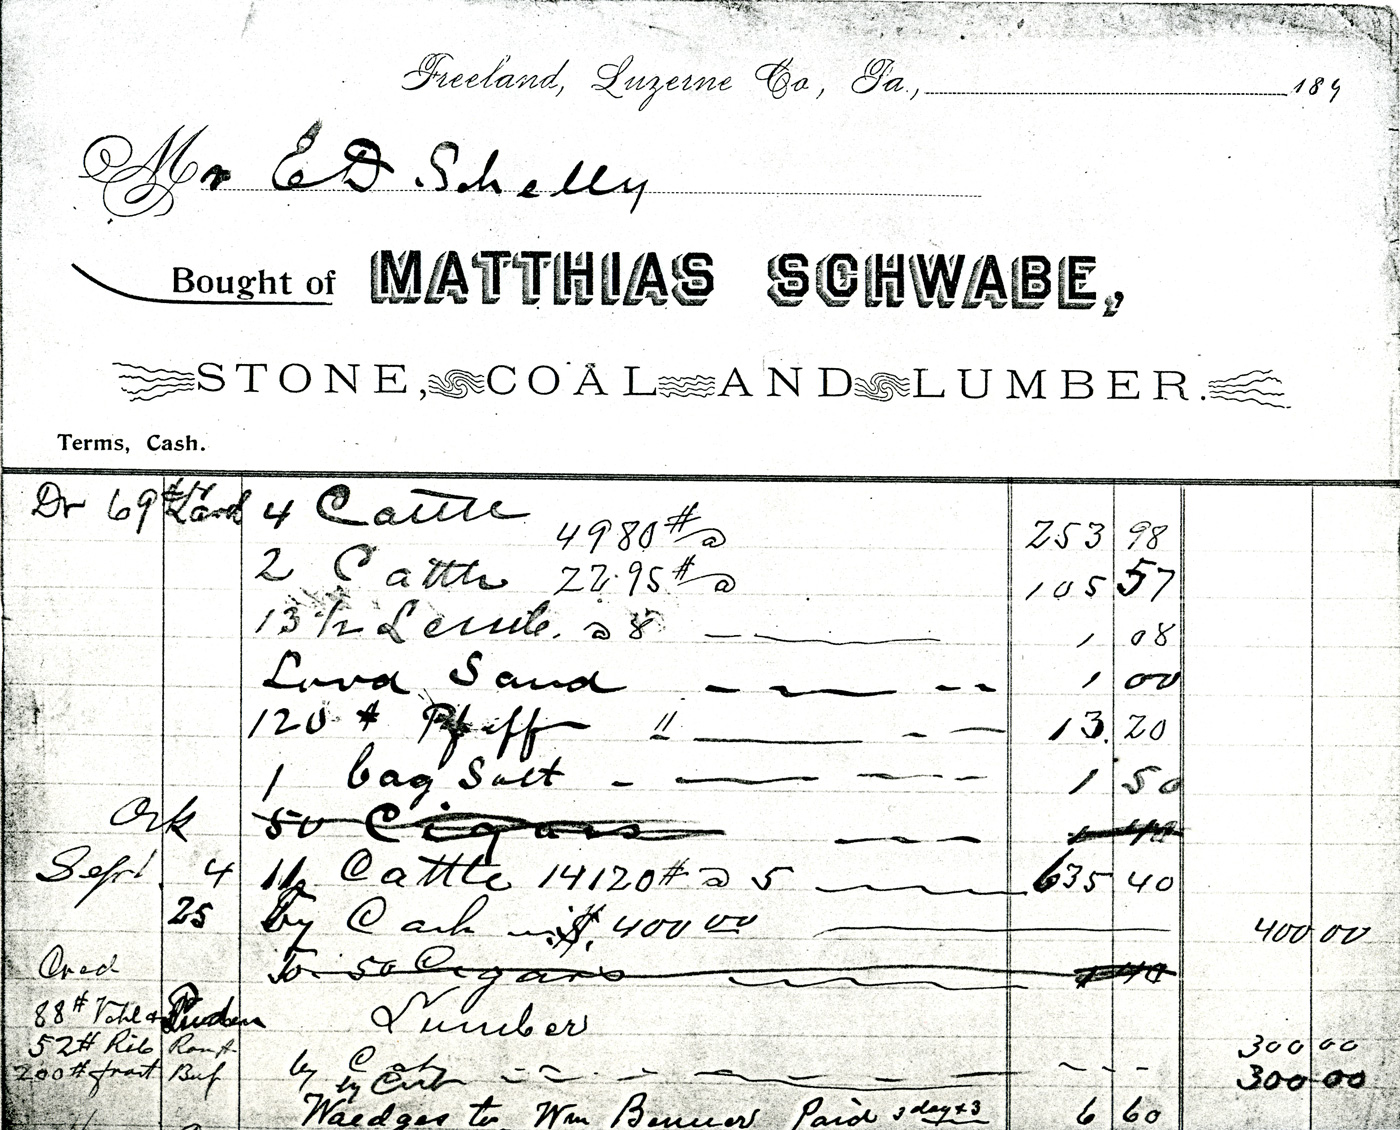 Freeland, Luzerne Co, Pa., 189
Mr E D Schelly
Bought of MATTHIAS SCHWABE,
STONE, COAL AND LUMBER.
Terms, Cash.
Dr 69 # Lard 4 Cattle 4980 # @ 253 98
2 Cattle 22.95 # @ 105 57
13 1/2 @ 8 1 08
Sand 1 00
120 # 13.20
1 bag Salt 1 50
50 Cigars
Sept. 4 11 Cattle 14120 # @ 5 635 40
25 by Cash $400 00 400 00
Cred To 50 Cigars
88 # Lumber
52 # Rib Roast 300 00
200 # front by Cash 300 00
by Cash
Waedges to Wm Benner Paid 3 day + 3 6 60